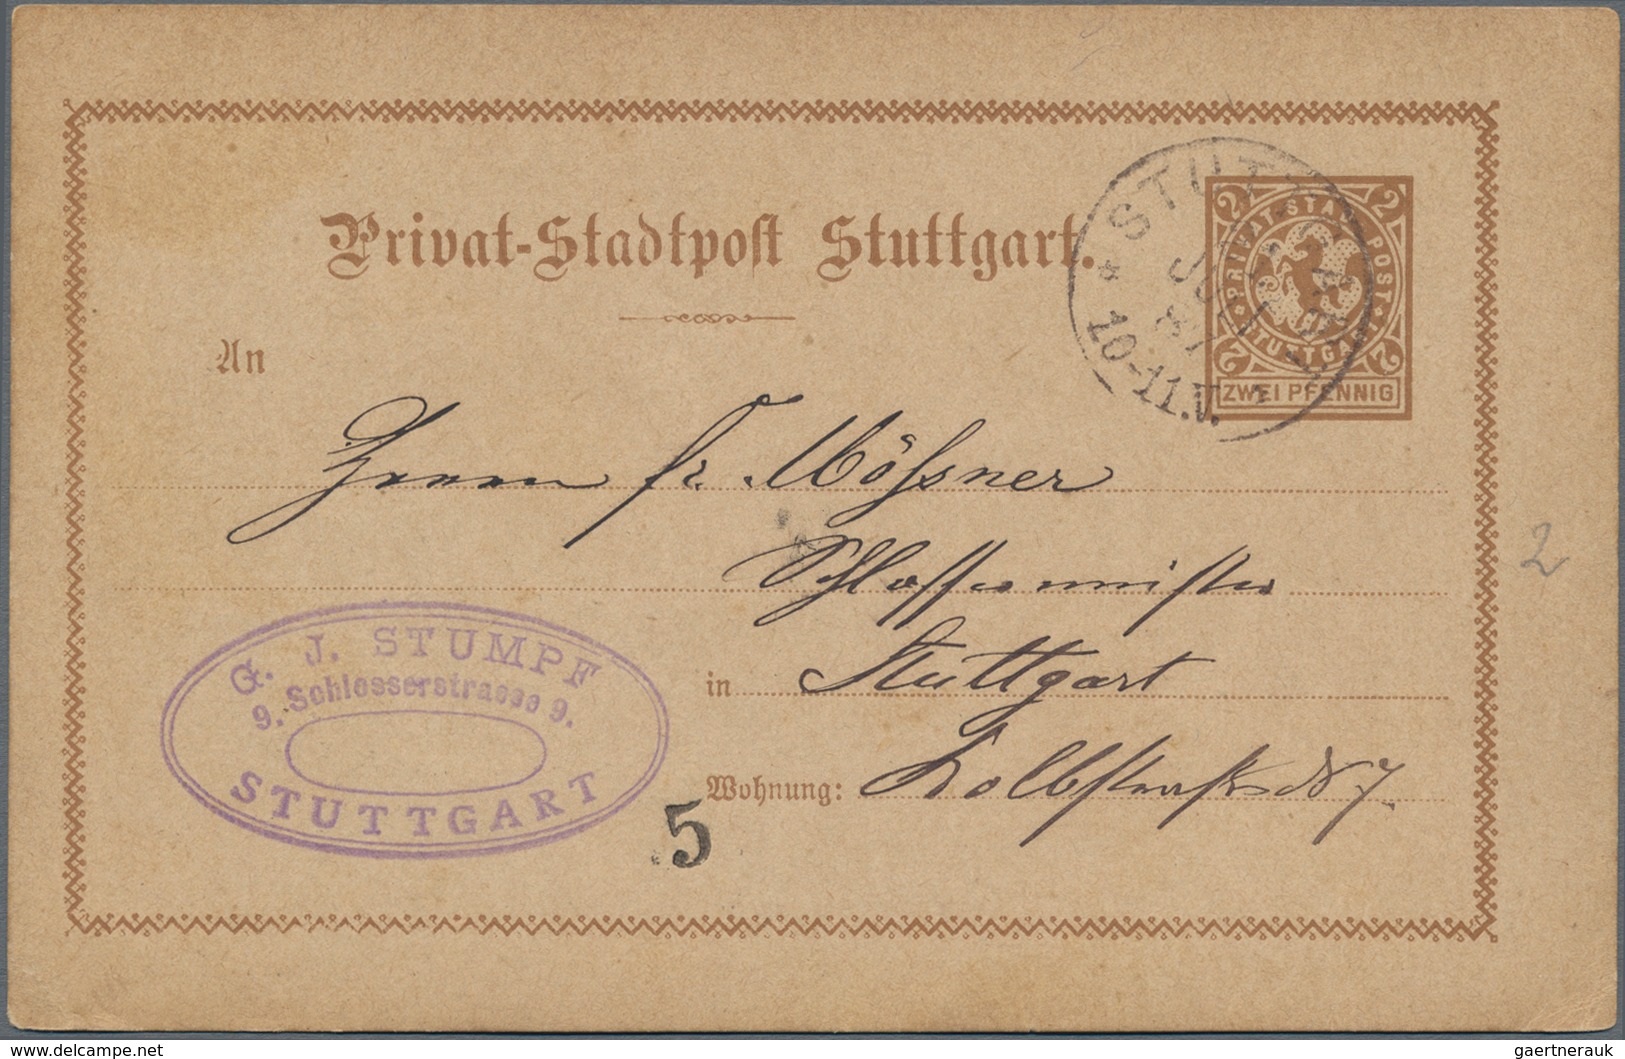 Privat-Stadtpost Stuttgart.
2 2
PRIVAT-STADT POST
STUTTGART
2 2
ZWEI PFENNIG
STUTTGART
JULI
87
10-11.V.
An
Herrn fr. Mössner
Schlossermeister
in Stuttgart
Wohnung:
No 7.
G. J. STUMPF
9. Schlosserstrasse 9.
STUTTGART
5
2
www.delcampe.net
gaertnerauk